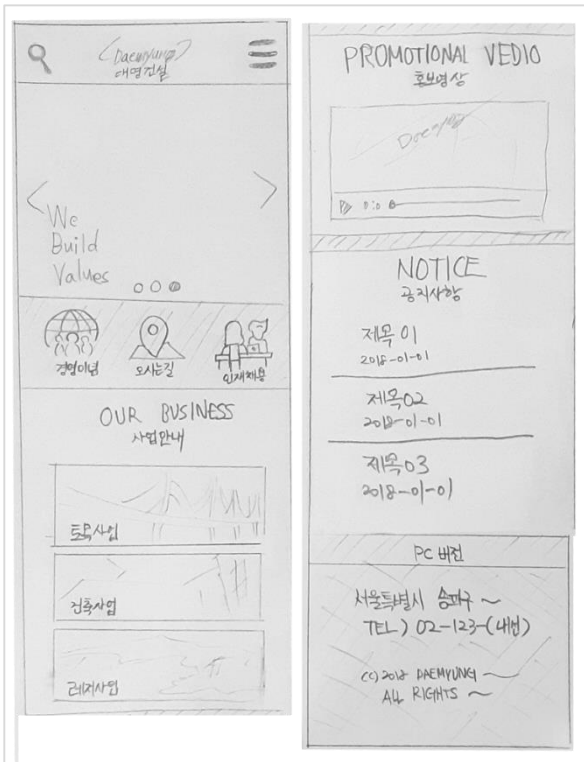 Daemyung
대명건설
We
Build
Values
경영이념
오시는길
인재채용
OUR BUSINESS
사업안내
토목사업
건축사업
레저사업
PROMOTIONAL VEDIO
홍보영상
Daemyung
0:0
NOTICE
공지사항
제목 01
2018-01-01
제목02
2018-01-01
제목03
2018-01-01
PC 버전
서울특별시 송파구 ~
TEL) 02-123-(내선)
(C) 2018 DAEMYUNG ~
ALL RIGHTS ~